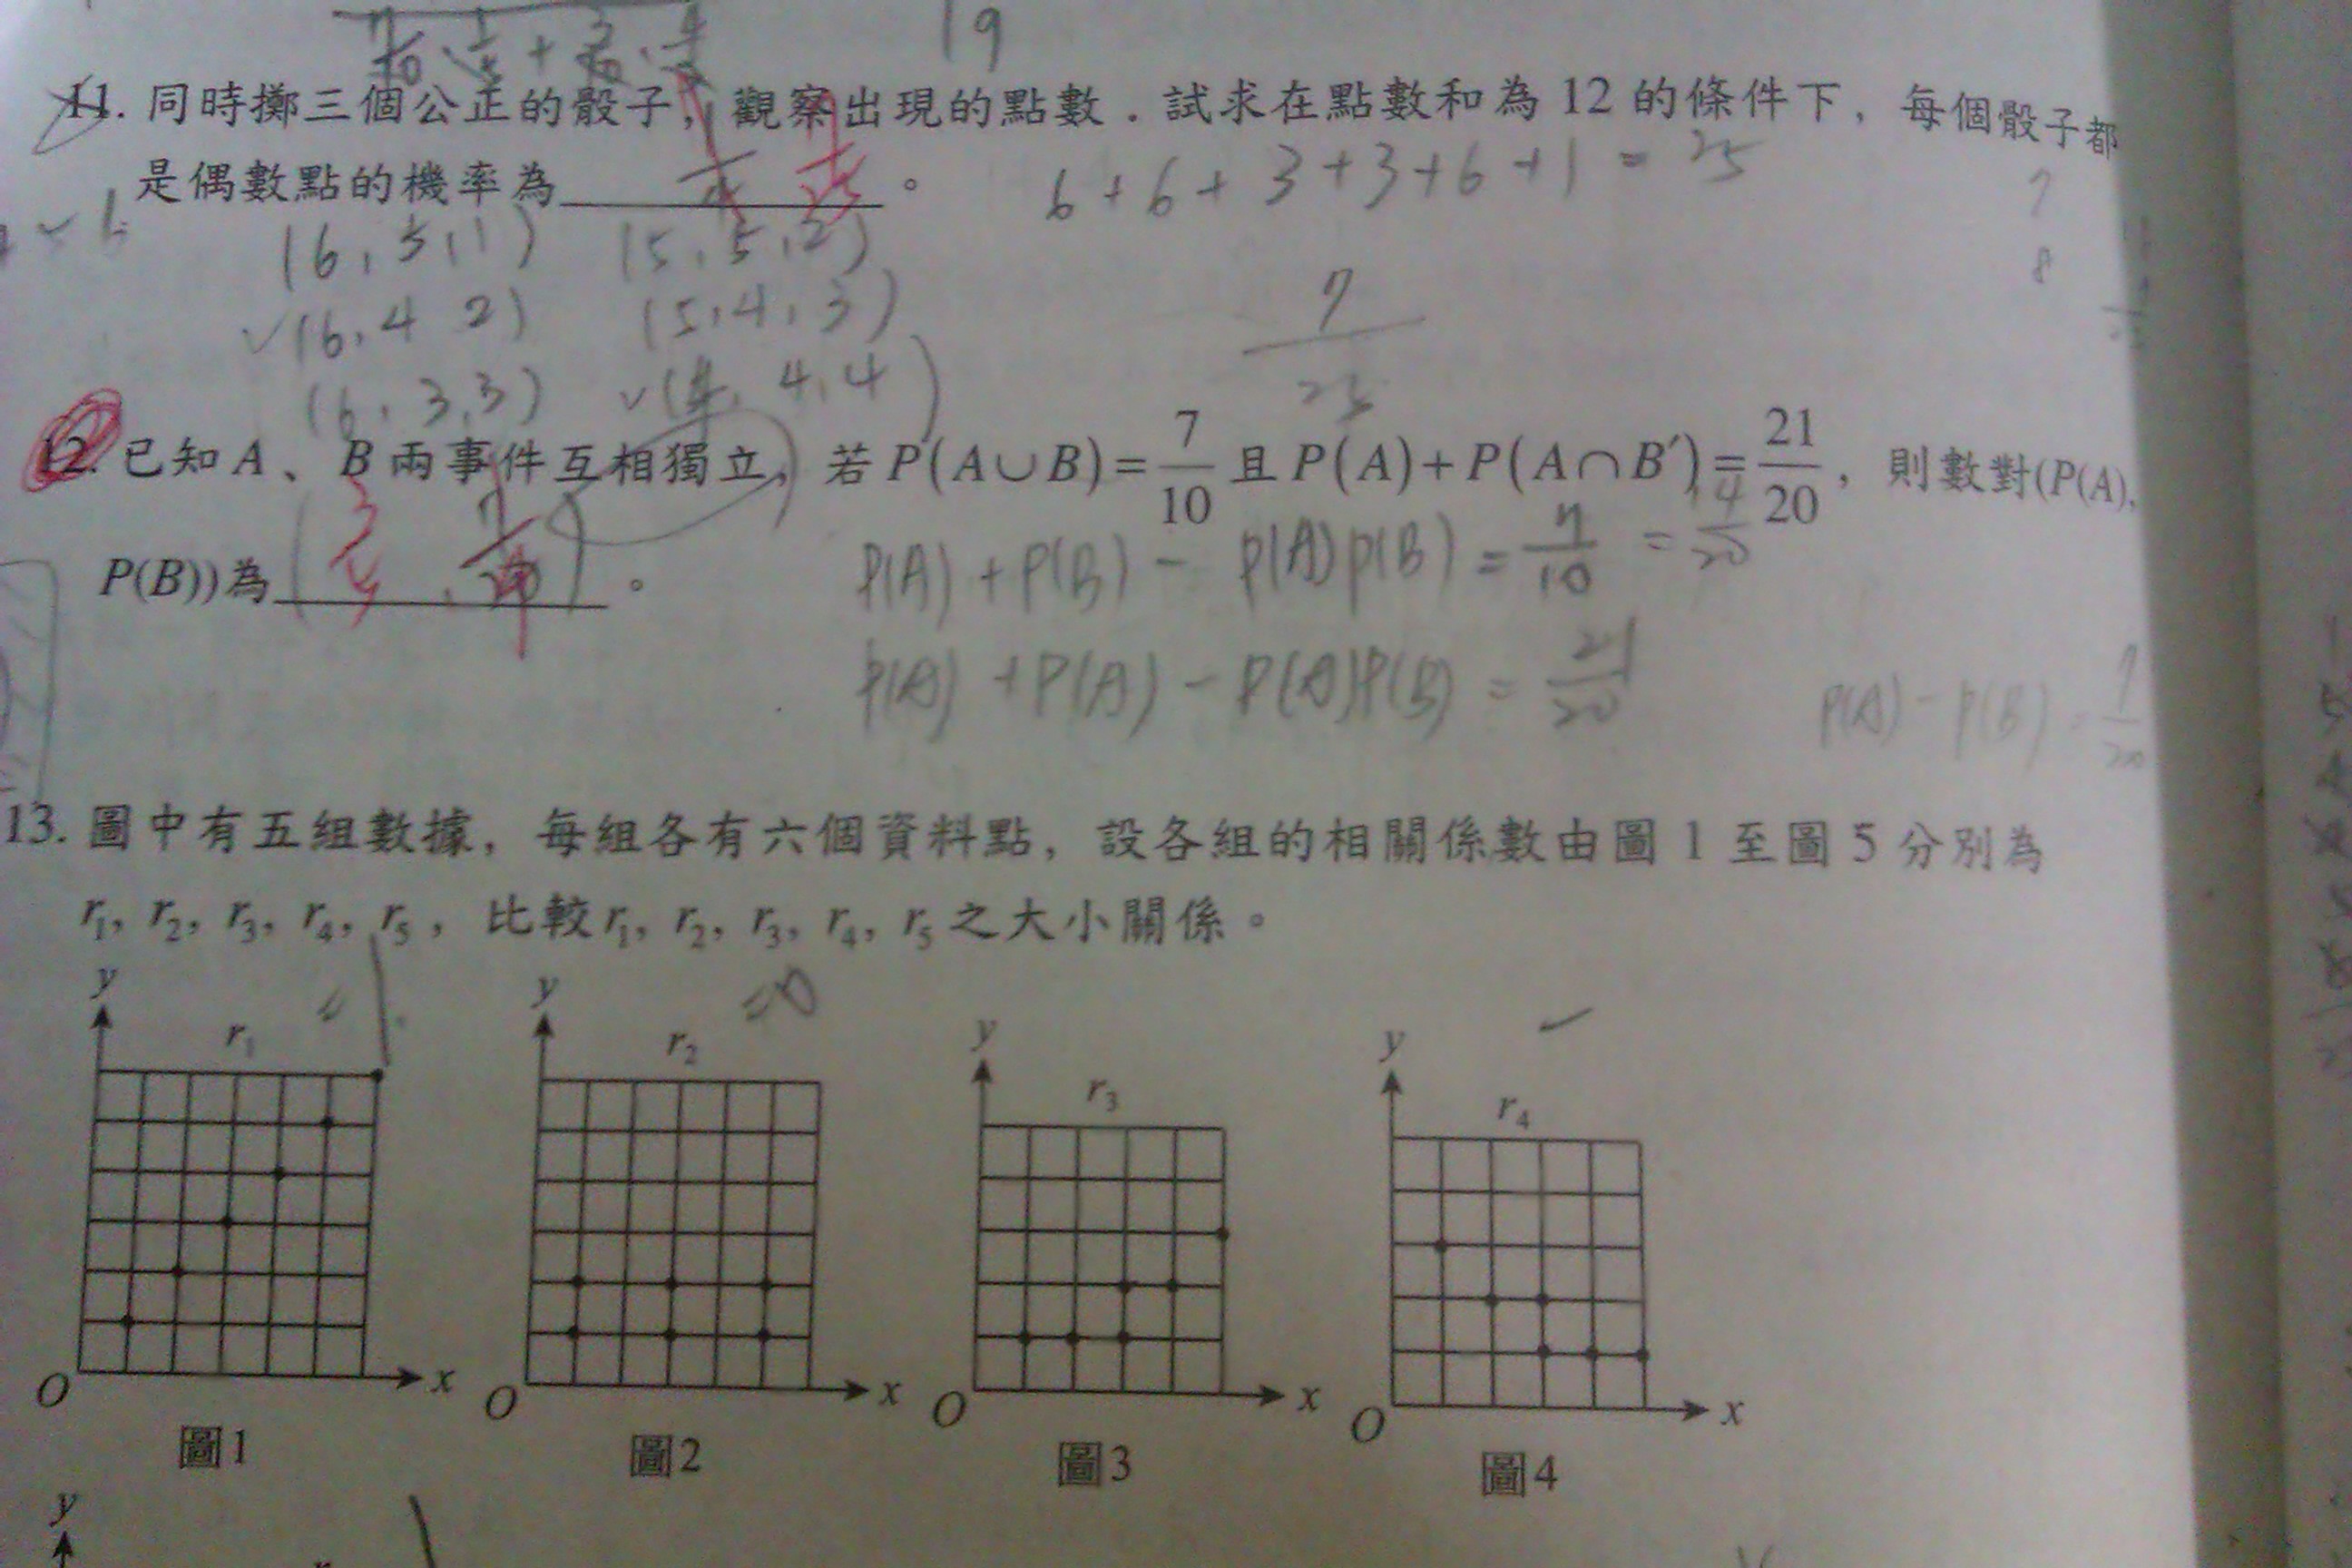 19
11. 同時擲三個公正的骰子，觀察出現的點數．試求在點數和為 12 的條件下，每個骰子都
是偶數點的機率為 。
6 + 6 + 3 + 3 + 6 + 1 = 25
(6, 5, 1) (5, 5, 2)
✓(6, 4 2) (5, 4, 3)
7/25
(6, 3, 3) ✓(4, 4, 4)
12. 已知 A、B 兩事件互相獨立，若 P(A∪B) = 7/10 且 P(A) + P(A∩B′) = 21/20，則數對(P(A),
P(B))為 。
P(A) + P(B) − P(A)P(B) = 7/10 = 14/20
P(A) + P(A) − P(A)P(B) = 21/20
P(A) − P(B) = 7/20
13. 圖中有五組數據，每組各有六個資料點，設各組的相關係數由圖 1 至圖 5 分別為
r₁, r₂, r₃, r₄, r₅，比較 r₁, r₂, r₃, r₄, r₅ 之大小關係。
y y y y
r₁ r₂ r₃ r₄
O x O x O x O x
圖1 圖2 圖3 圖4
y